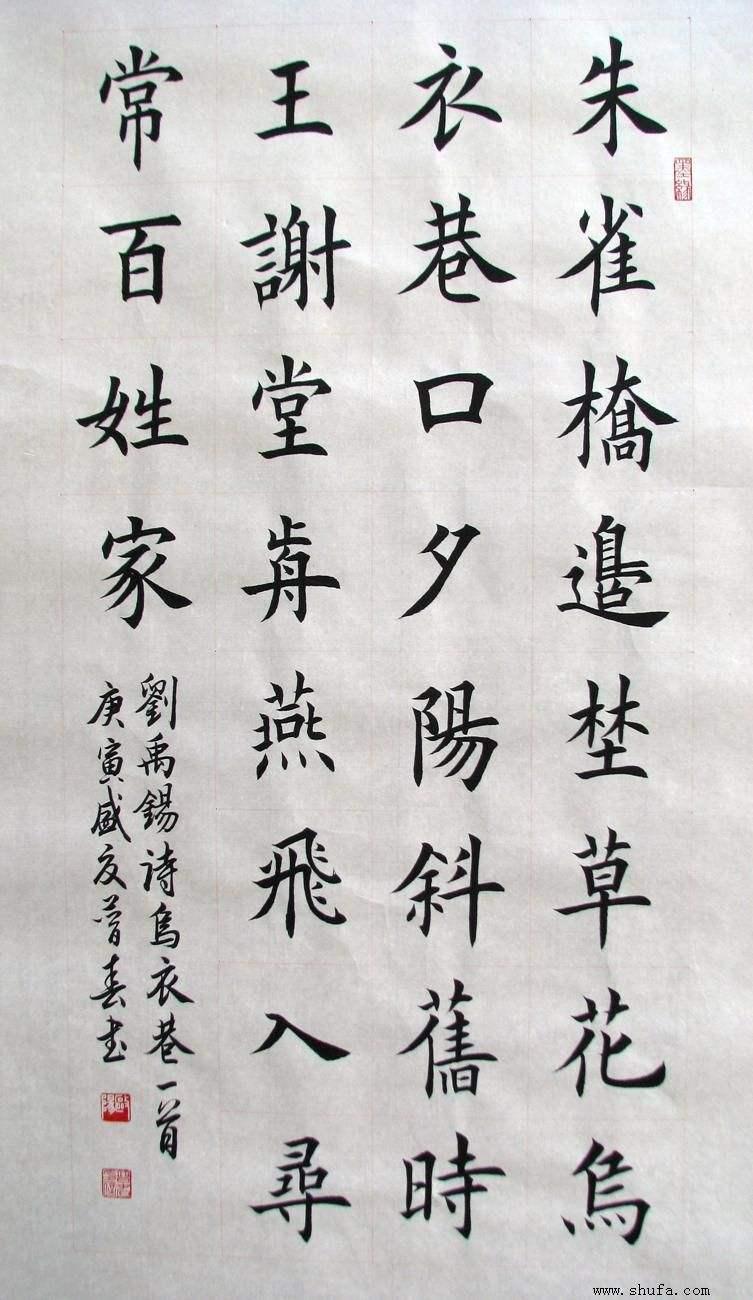 朱雀橋邉埜草花烏
衣巷口夕陽斜舊時
王謝堂歬燕飛入尋
常百姓家
劉禹錫詩烏衣巷一首
庚寅盛夏曾春书
www.shufa.com